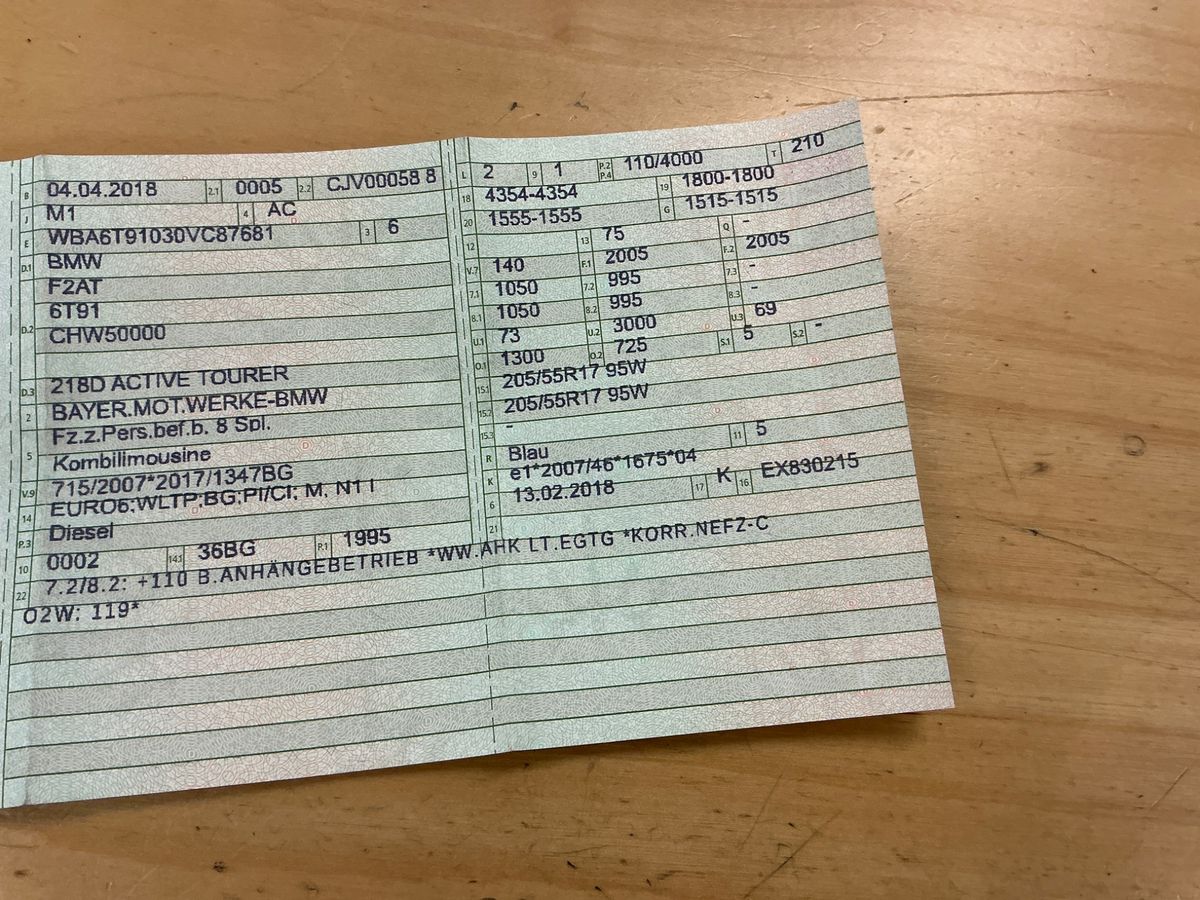 B 04.04.2018 2.1 0005 2.2 CJV00058 8
J M1 4 AC
E WBA6T91030VC87681 3 6
D.1 BMW
F2AT
6T91
D.2 CHW50000
D.3 218D ACTIVE TOURER
2 BAYER.MOT.WERKE-BMW
Fz.z.Pers.bef.b. 8 Spl.
5 Kombilimousine
V.9 715/2007*2017/1347BG
14 EURO6;WLTP;BG;PI/CI; M, N1 I
P.3 Diesel
10 0002 14.1 36BG P.1 1995
L 2 9 1 P.2 P.4 110/4000 T 210
18 4354-4354 19 1800-1800
20 1555-1555 G 1515-1515
12 13 75 Q -
V.7 140 F.1 2005 F.2 2005
7.1 1050 7.2 995 7.3 -
8.1 1050 8.2 995 8.3 -
U.1 73 U.2 3000 U.3 69
O.1 1300 O.2 725 S.1 5 S.2 -
15.1 205/55R17 95W
15.2 205/55R17 95W
15.3 -
R Blau 11 5
K e1*2007/46*1675*04
6 13.02.2018 17 K 16 EX830215
21
22 7.2/8.2: +110 B.ANHÄNGEBETRIEB *WW.AHK LT.EGTG *KORR.NEFZ-C
O2W: 119*